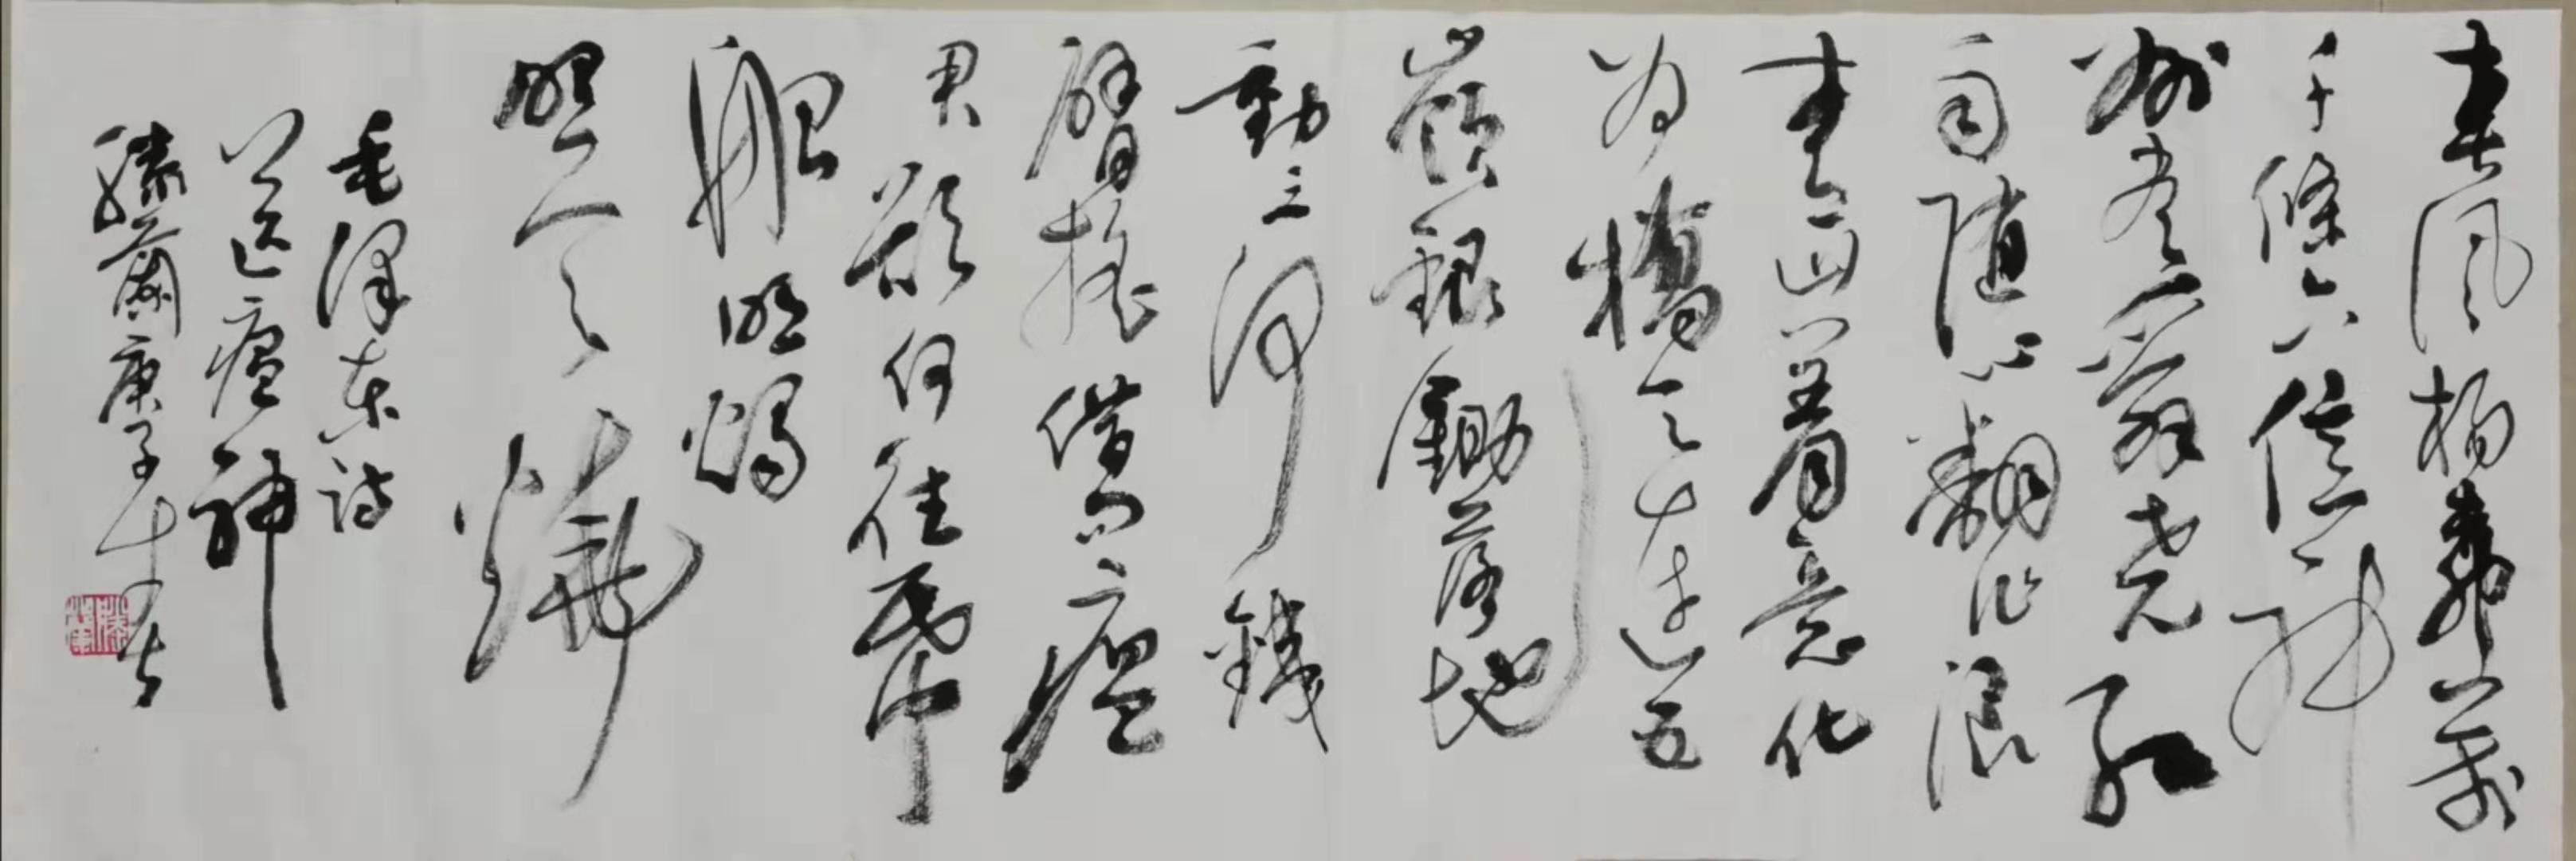 春風楊柳萬
千條六億神
州盡舜堯紅
雨隨心翻作浪
青山著意化
為橋天連五
嶺銀鋤落地
動三河鐵
臂搖借問瘟
君欲何往紙
船明燭
照天燒
毛澤東詩
送瘟神
庚子年書